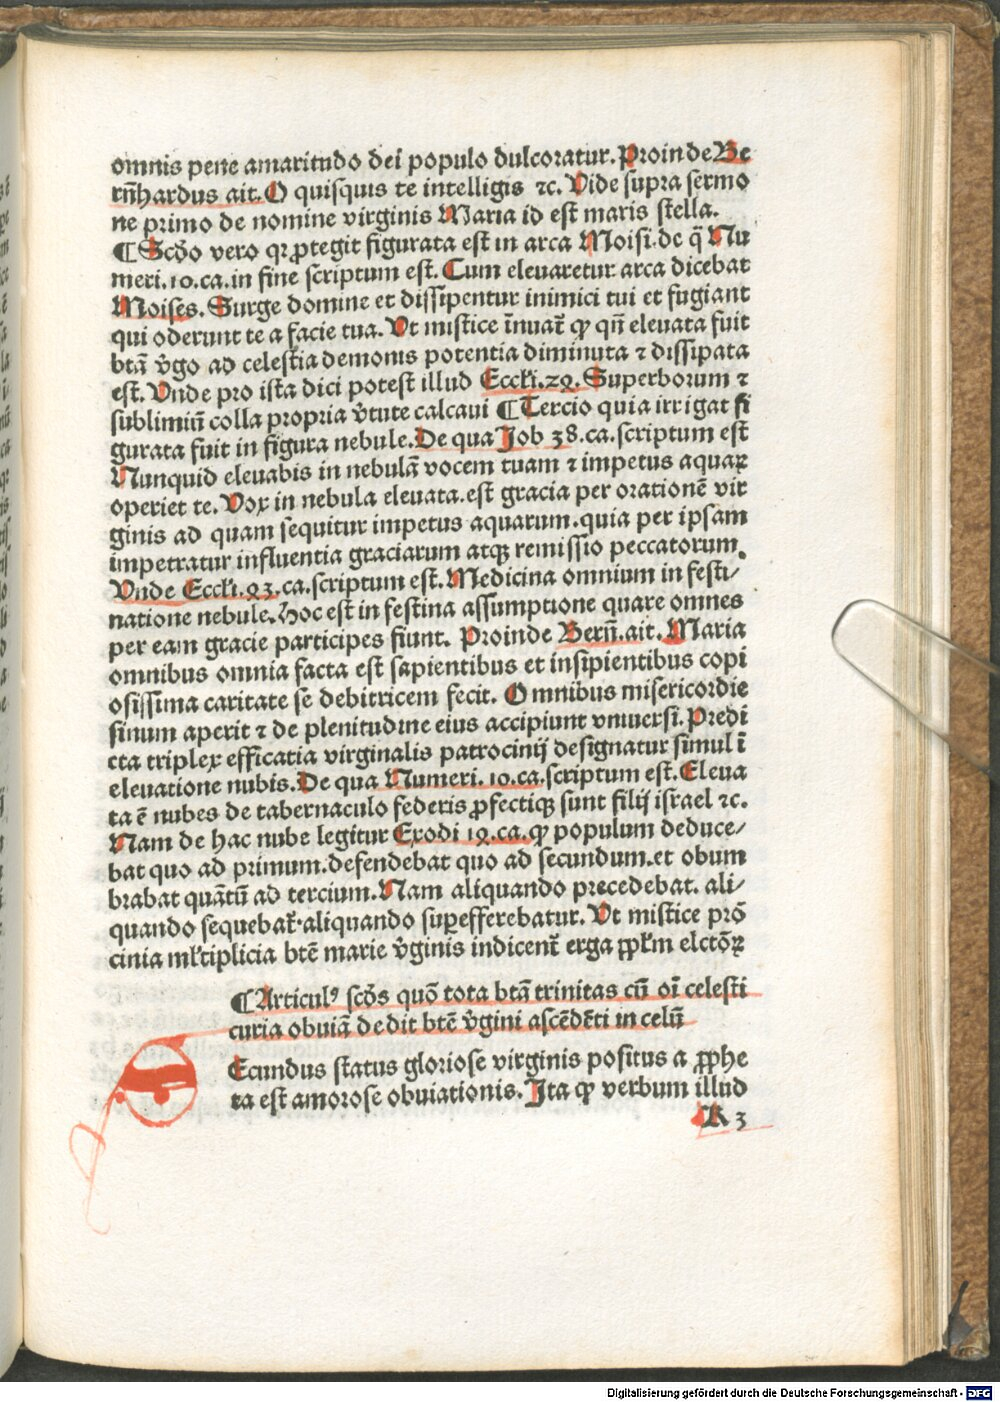 omnis pene amaritudo dei populo dulcoratur. Proinde Be
rñhardus ait. O quisquis te intelligis ꝛc. Vide supra sermo
ne primo de nomine virginis Maria id est maris stella.
¶ Scđo vero qꝛ ꝓtegit figurata est in arca Moisi. de q̄ Nu
meri. 10. ca. in fine scriptum est. Cum eleuaretur arca dicebat
Moises. Surge domine et dissipentur inimici tui et fugiant
qui oderunt te a facie tua. Vt mistice īnuat̄ ꝙ qñ eleuata fuit
btā v̄go ad celestia demonis potentia diminuta ⁊ dissipata
est. Vnde pro ista dici potest illud Eccłi. 24. Superborum ⁊
sublimiū colla propria v̄tute calcaui ¶ Tercio quia irrigat fi
gurata fuit in figura nebule. De qua Job 38. ca. scriptum est
Nunquid eleuabis in nebulā vocem tuam ⁊ impetus aquaꝝ
operiet te. Vox in nebula eleuata. est gracia per orationē vir
ginis ad quam sequitur impetus aquarum. quia per ipsam
impetratur influentia graciarum atqꝫ remissio peccatorum.
Vnde Eccłi. 43. ca. scriptum est. Medicina omnium in festi/
natione nebule. hoc est in festina assumptione quare omnes
per eam gracie participes fiunt. Proinde Berñ. ait. Maria
omnibus omnia facta est sapientibus et insipientibus copi
osissima caritate se debitricem fecit. Omnibus misericordie
sinum aperit ⁊ de plenitudine eius accipiunt vniuersi. Predi
cta triplex efficatia virginalis patrocinij designatur simul ī
eleuatione nubis. De qua Numeri. 10. ca. scriptum est. Eleua
ta ē nubes de tabernaculo federis ꝓfectiqꝫ sunt filij israel ⁊c.
Nam de hac nube legitur Exodi 14. ca. ꝙ populum deduce/
bat quo ad primum. defendebat quo ad secundum. et obum
brabat quātū ad tercium. Nam aliquando precedebat. ali/
quando sequebat̄. aliquando suꝑefferebatur. Vt mistice prō
cinia młtiplicia btē marie v̄ginis indicent̄ erga ꝓpłm elctōꝝ
¶ Articulꝰ scđs quō tota btā trinitas cū oī celesti
curia obuiā dedit btē v̄gini ascēdēti in celū
Ecundus status gloriose virginis positus a ꝓphe
ta est amorose obuiationis. Ita ꝙ verbum illud
K 3
Digitalisierung gefördert durch die Deutsche Forschungsgemeinschaft - DFG